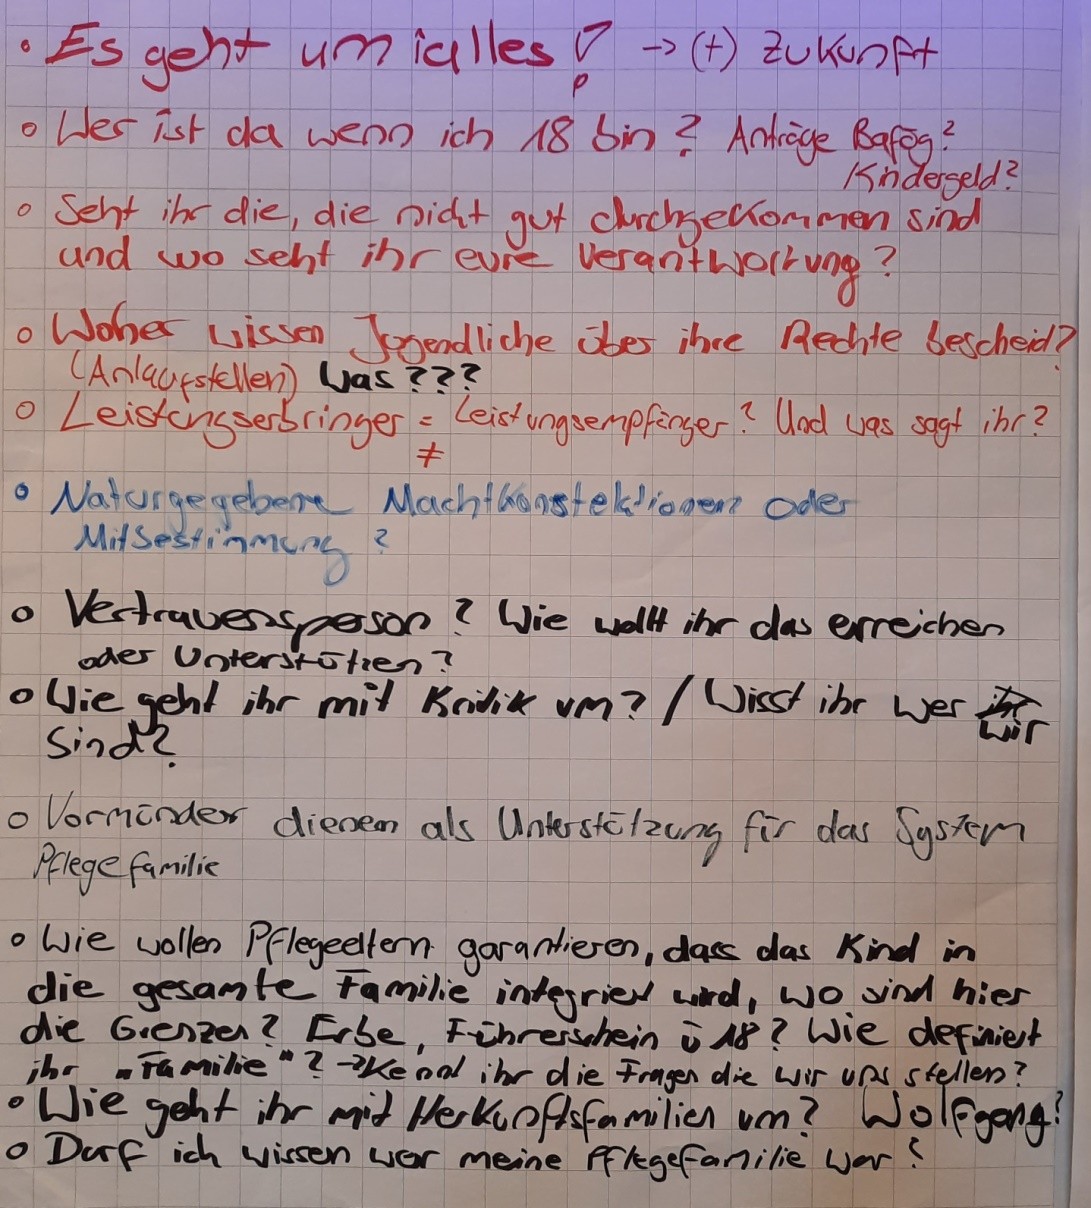 • Es geht um alles! → (+) Zukunft
o Wer ist da wenn ich 18 bin? Anträge Bafög?
Kindergeld?
o Seht ihr die, die nicht gut durchgekommen sind
und wo seht ihr eure Verantwortung?
o Woher wissen Jugendliche über ihre Rechte bescheid?
(Anlaufstellen) Was???
o Leistungserbringer = Leistungsempfänger? Und was sagt ihr?
≠
o Naturgegebene Machtkonstektionen? oder
Mitbestimmung?
o Vertrauensperson? Wie wollt ihr das erreichen
oder Unterstützen?
o Wie geht ihr mit Kritik um? / Wisst ihr wer
wir
sind?
o Vormünder dienen als Unterstützung für das System
Pflegefamilie
o Wie wollen Pflegeeltern garantieren, dass das Kind in
die gesamte Familie integriert wird, wo sind hier
die Grenzen? Erbe, Führerschein ü 18? Wie definiert
ihr "Familie"? → Kennt ihr die Fragen die wir uns stellen?
• Wie geht ihr mit Herkunftsfamilien um? Wolfgang?
o Darf ich wissen wer meine Pflegefamilie war?